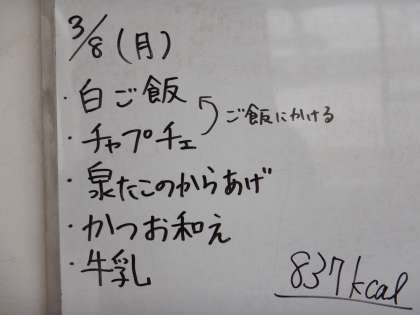 3/8(月)
・白ご飯
ご飯にかける
・チャプチェ
・泉たこのからあげ
・かつお和え
・牛乳
837kcal